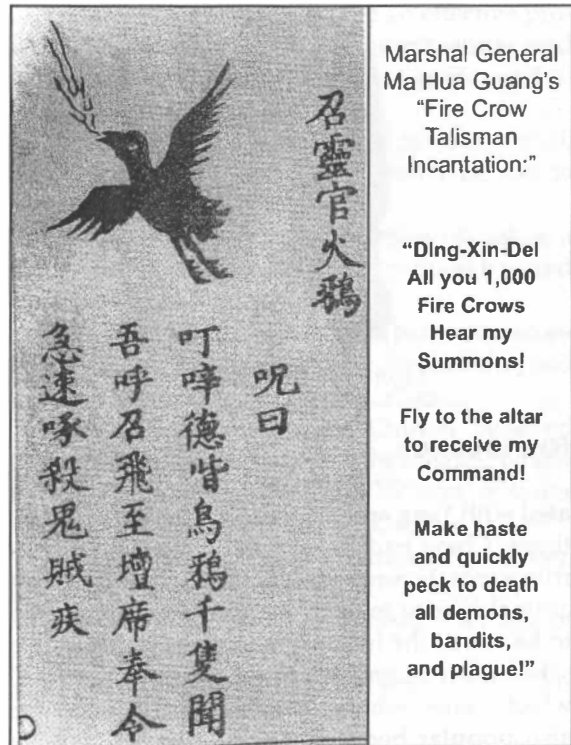 召靈官火鴉
呪曰
叮啐德烏鴉千隻聞
吾呼召飛至壇席奉令
急速啄殺鬼賊疾
Marshal General
Ma Hua Guang's
"Fire Crow
Talisman
Incantation:"
"Ding-Xin-De!
All you 1,000
Fire Crows
Hear my
Summons!
Fly to the altar
to receive my
Command!
Make haste
and quickly
peck to death
all demons,
bandits,
and plague!"